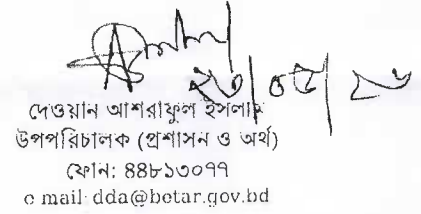 ২৩/০৫/২৬
দেওয়ান আশরাফুল ইসলাম
উপপরিচালক (প্রশাসন ও অর্থ)
ফোন: ৪৪৮১৩০৭৭
e mail: dda@betar.gov.bd